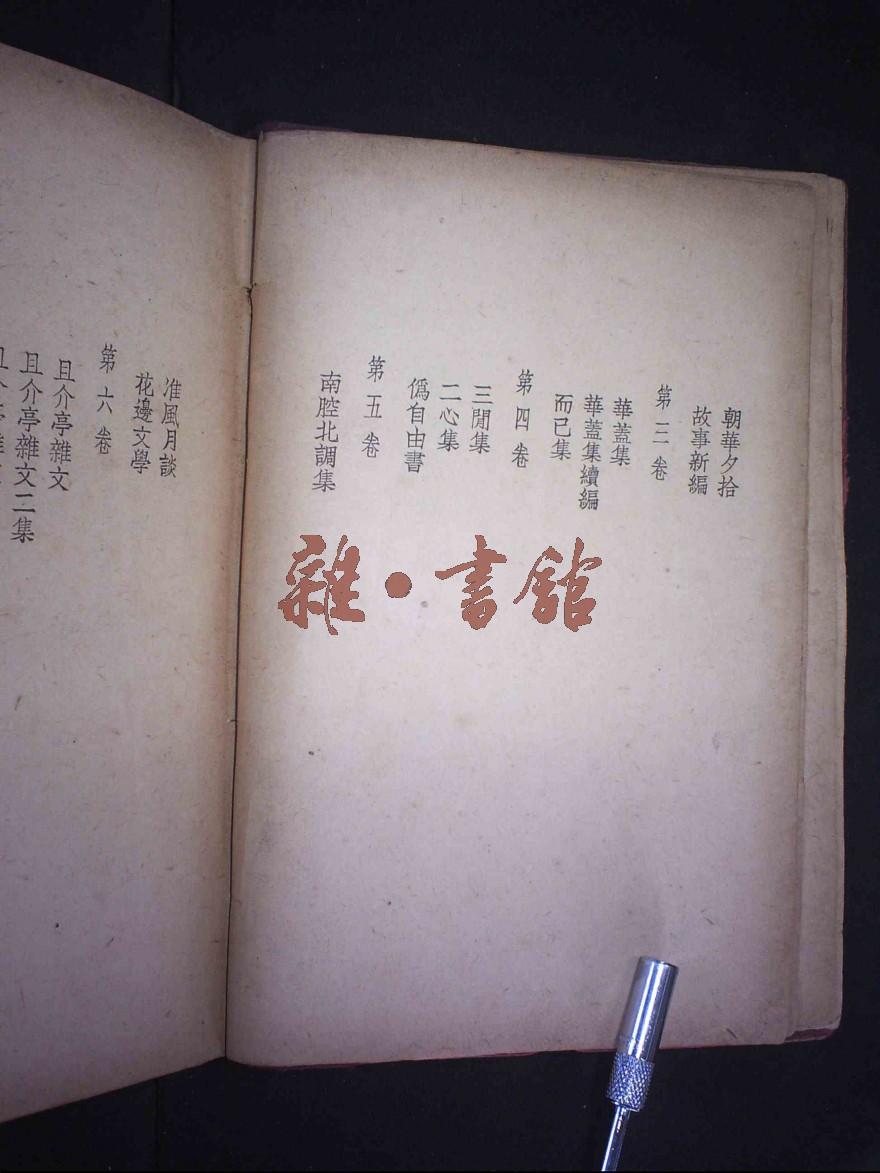 朝華夕拾
故事新編
第三卷
華蓋集
華蓋集續編
而已集
第四卷
三閒集
二心集
僞自由書
第五卷
南腔北調集
准風月談
花邊文學
第六卷
且介亭雜文
且介亭雜文二集
且介亭雜文
雜·書館